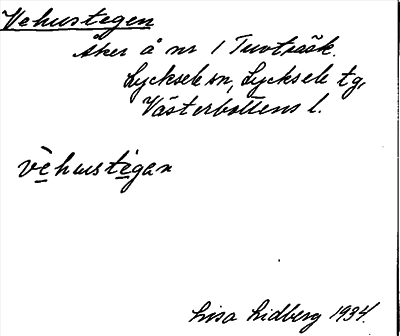 Vehustegen
Åker å nr 1 Tuvträsk.
Lycksele sn, Lycksele tg,
Västerbottens l.
vèhustegan
Lisa Lidberg 1934.